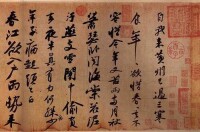 自我來黃州已過三寒
食年〻欲惜春〻去不
容惜今年又苦雨兩月秋
蕭瑟臥聞海棠花泥
汙燕支雪闇中偷負
去夜半真有力何殊
年子病起頭已白
春江欲入戶雨勢來